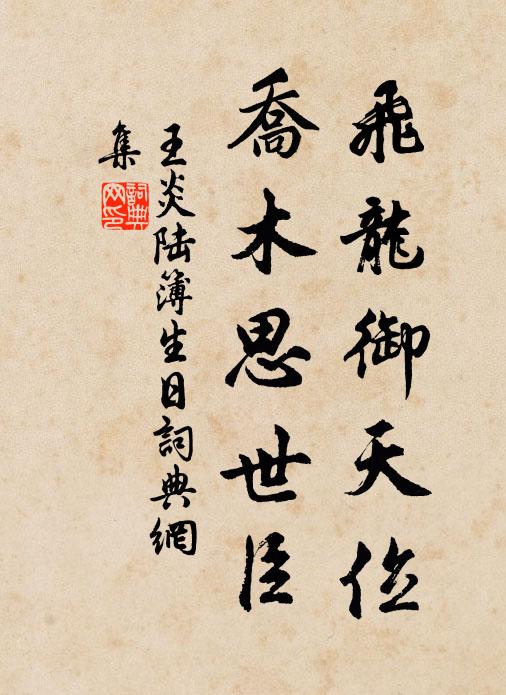 飛龍御天位
喬木思世臣
王炎陆簿生日詞典網
集
詞典
网印